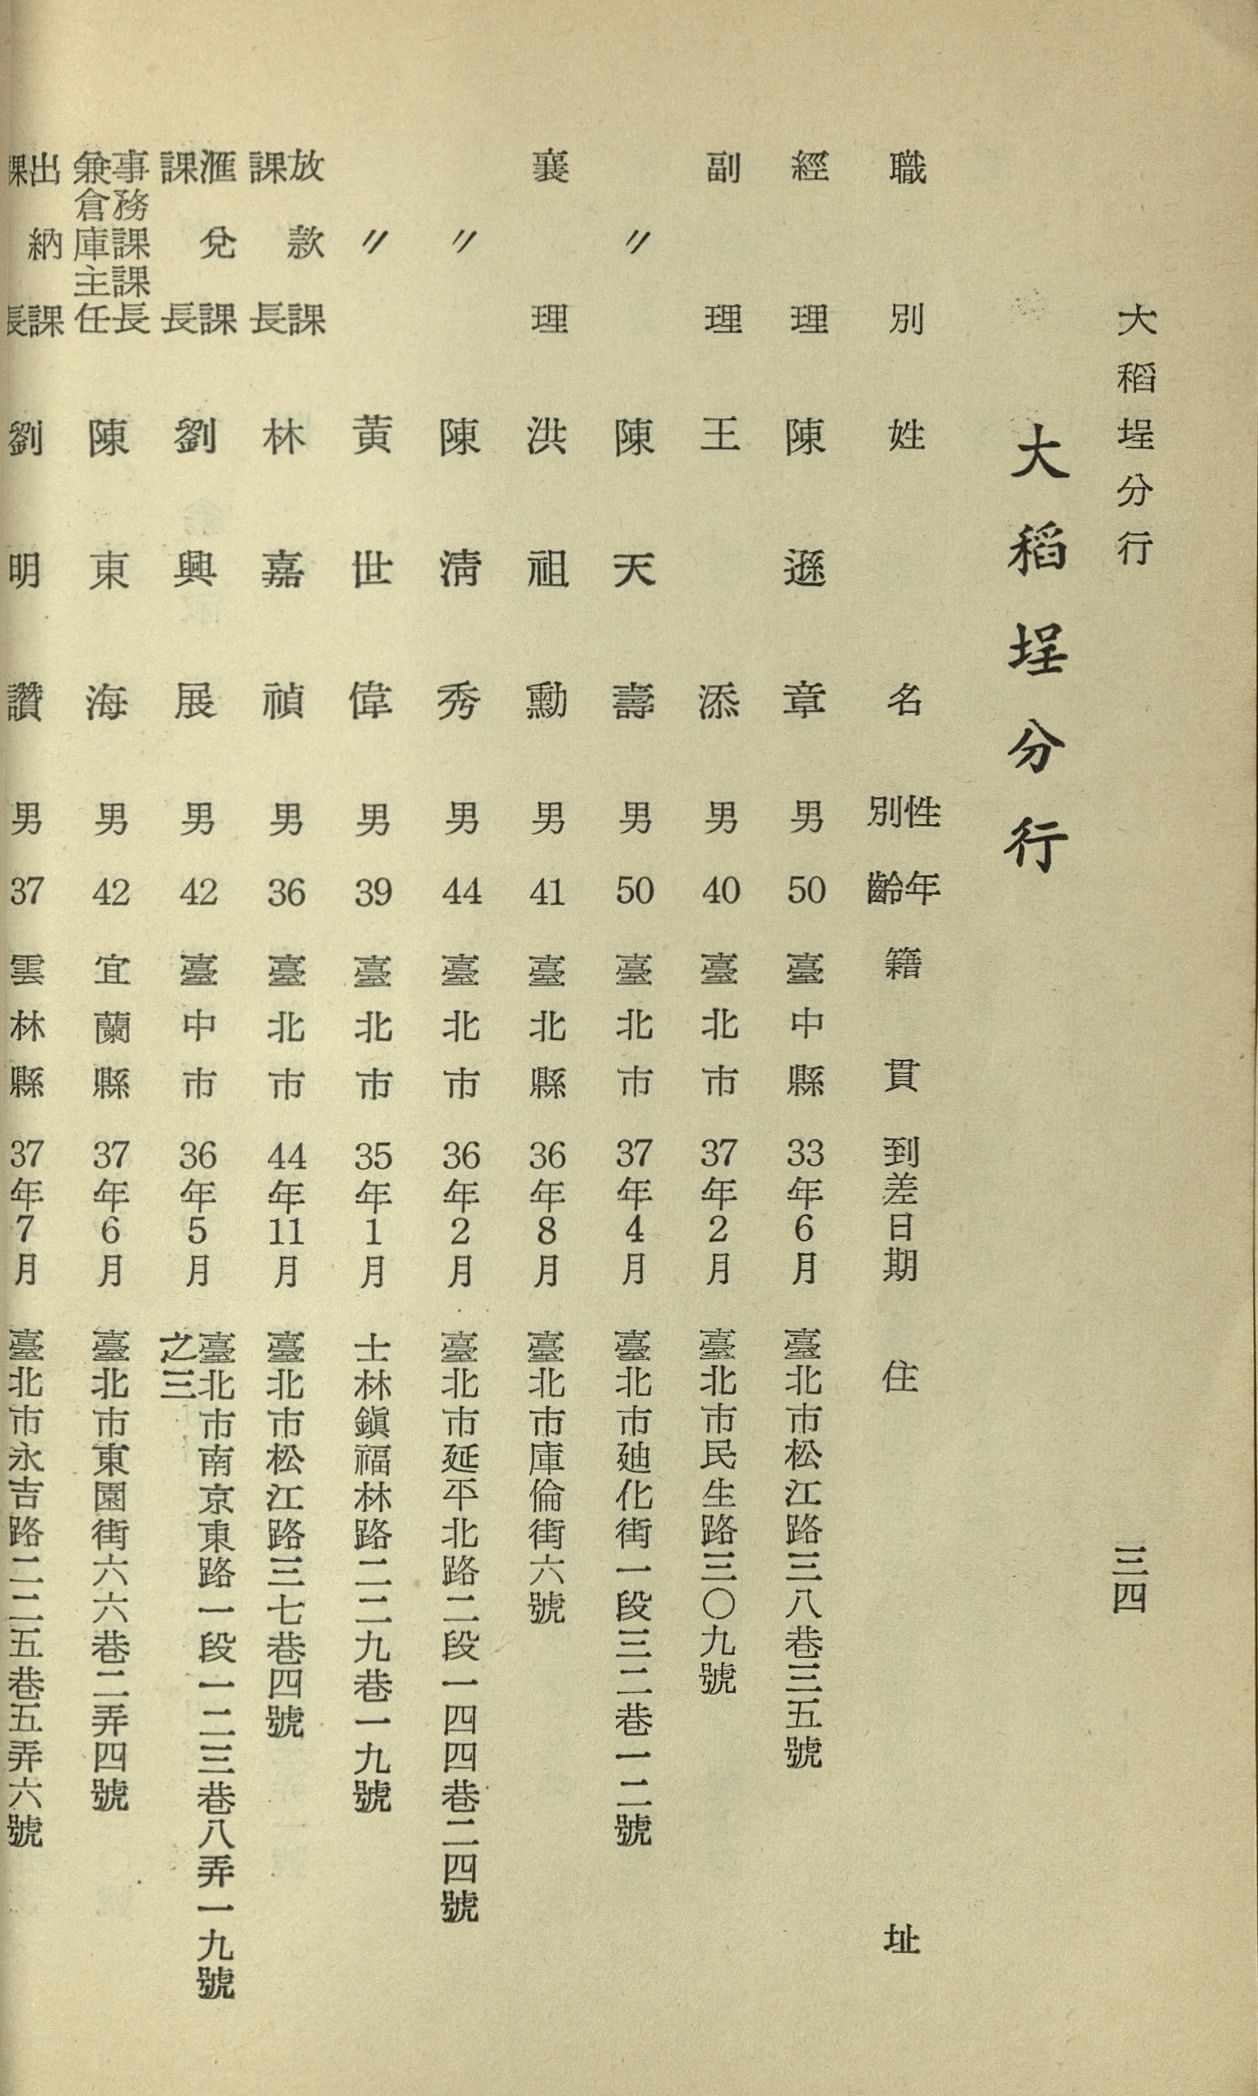 大稻埕分行
三四
大稻埕分行
職別 姓名 性別 年齡 籍貫 到差日期 住址
經理 陳遜章 男 50 臺中縣 33年6月 臺北市松江路三八巷三五號
副理 王添 男 40 臺北市 37年2月 臺北市民生路三〇九號
〃 陳天壽 男 50 臺北市 37年4月 臺北市廸化街一段三二巷一二號
襄理 洪祖勳 男 41 臺北縣 36年8月 臺北市庫倫街六號
〃 陳淸秀 男 44 臺北市 36年2月 臺北市延平北路二段一四四巷二四號
〃 黃世偉 男 39 臺北市 35年1月 士林鎭福林路二二九巷一九號
放款課課長 林嘉禎 男 36 臺北市 44年11月 臺北市松江路三七巷四號
滙兌課課長 劉興展 男 42 臺中市 36年5月 臺北市南京東路一段一二三巷八弄一九號之三
事務課課長兼倉庫主任 陳東海 男 42 宜蘭縣 37年6月 臺北市東園街六六巷二弄四號
出納課課長 劉明讚 男 37 雲林縣 37年7月 臺北市永吉路二二五巷五弄六號